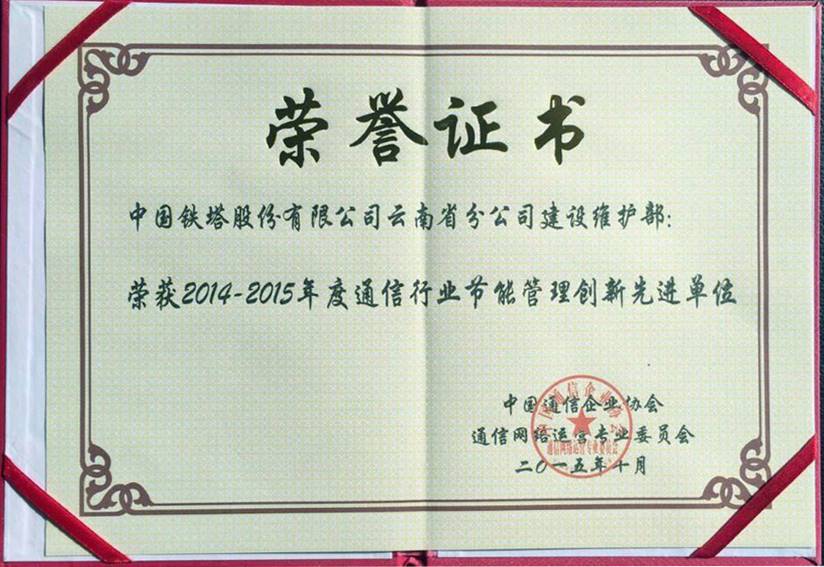 荣誉证书
中国铁塔股份有限公司云南省分公司建设维护部：
荣获2014-2015年度通信行业节能管理创新先进单位
中国通信企业协会
通信网络运营专业委员会
二〇一五年十月
中国通信企业协会
通信网络运营专业委员会